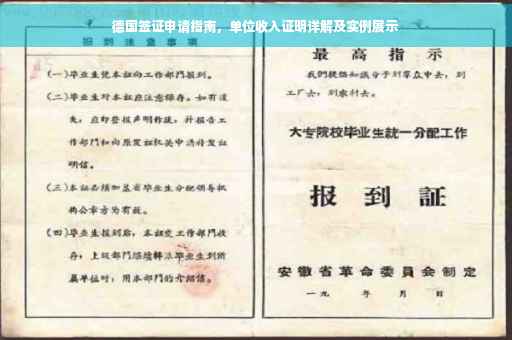 德国签证申请指南，单位收入证明详解及实例展示
报到注意事项
(一)毕业生凭本证向工作部门报到。
(二)毕业生对本证应注意保存。如有遗
失，应即登报声明作废，并报告工
作部门和向原发证机关申请补发证
明信。
(三)本证必须加盖省毕业生分配领导机
构公章方为有效。
(四)毕业生报到后，本证交工作部门收
存；上级部门继续转派毕业生到所
属单位时，用本部门的介绍信。
最高指示
我们提倡知识分子到群众中去，到
工厂去，到农村去。
大专院校毕业生统一分配工作
报到证
安徽省革命委员会制定
一九 年 月 日